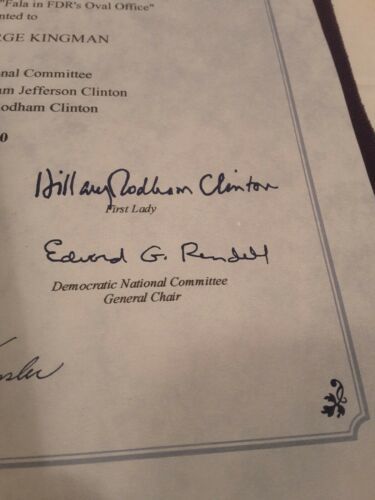 "Fala in FDR's Oval Office"
nted to
RGE KINGMAN
nal Committee
am Jefferson Clinton
Rodham Clinton
0
Hillary Rodham Clinton
First Lady
Edward G. Rendell
Democratic National Committee
General Chair